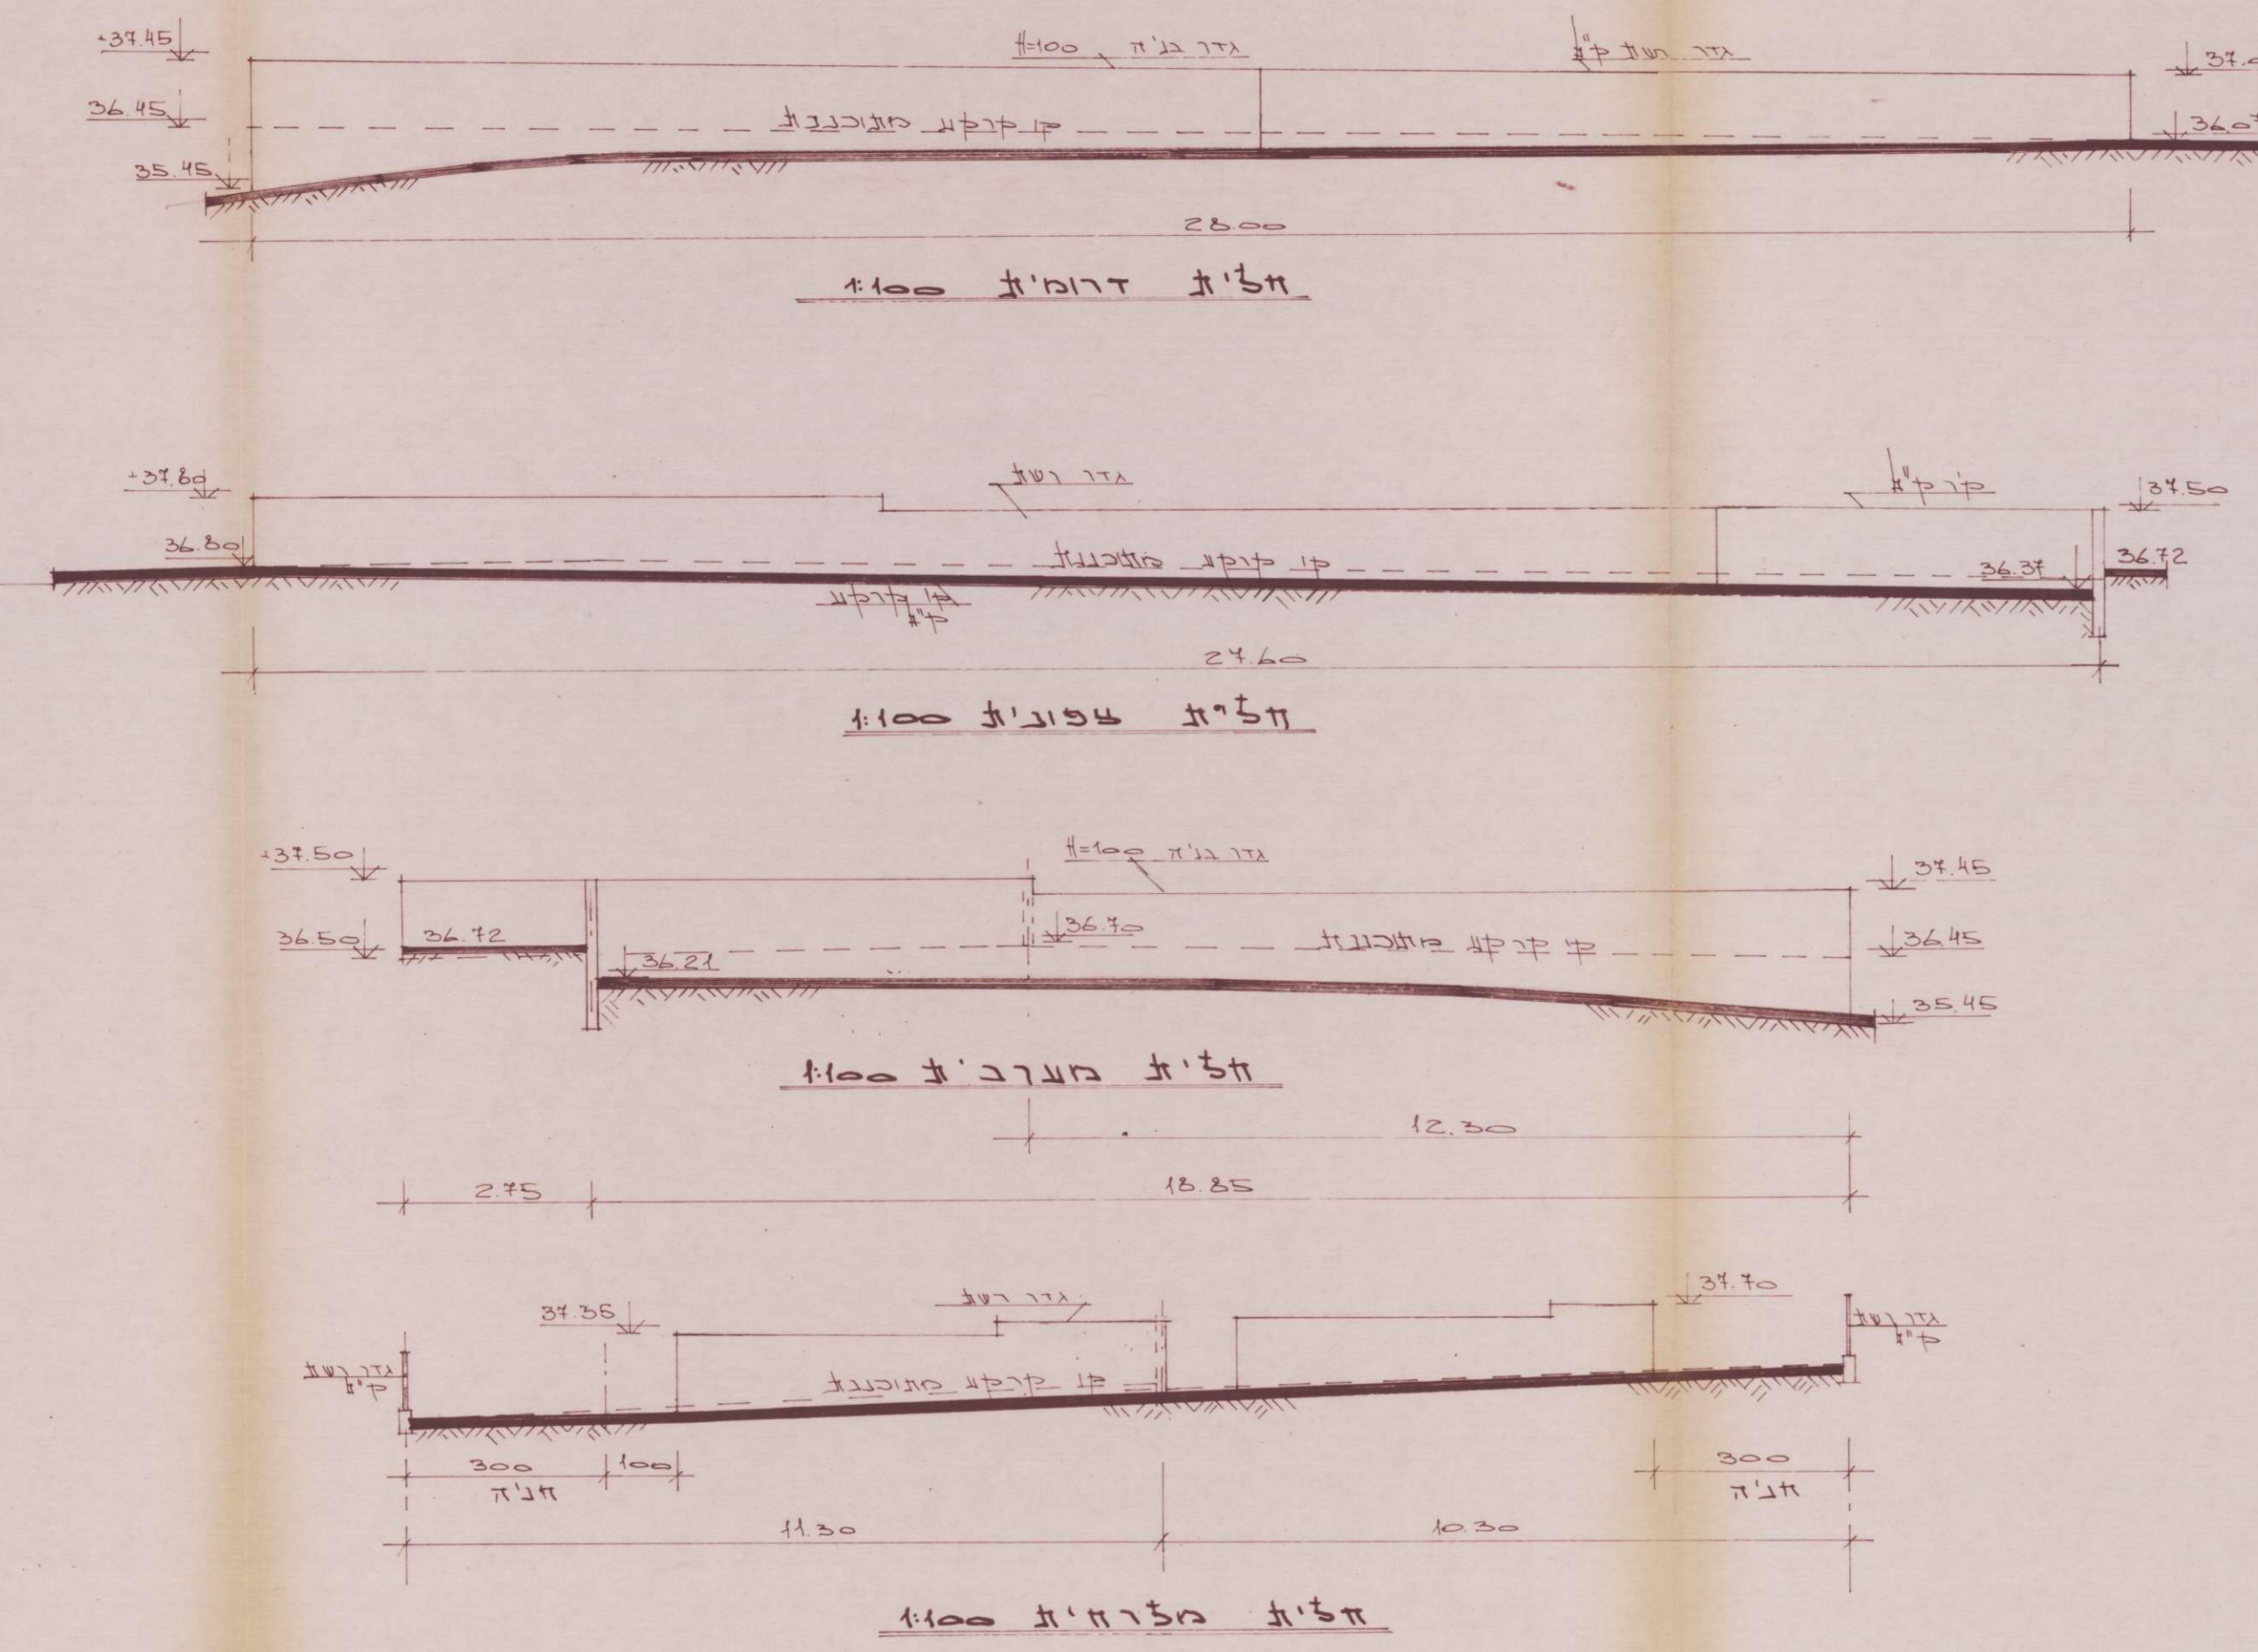 +37.45
גדר בניה H=100
גדר רשת ק"ק
36.45
קו קרקע מתוכננת
35.45
28.00
חזית דרומית 1:100
+37.80
גדר רשת
קיר ק"ק
37.50
36.80
קו קרקע מתוכננת
36.37
36.72
קו קרקע
ק"ק
27.60
חזית צפונית 1:100
+37.50
גדר בניה H=100
37.45
36.50
36.72
36.70
קו קרקע מתוכננת
36.45
36.21
35.45
חזית מערבית 1:100
12.30
2.75
18.85
37.35
גדר רשת
37.70
גדר רשת
ק"ק
גדר רשת
ק"ק
קו קרקע מתוכננת
300
100
300
חניה
חניה
11.30
10.30
חזית מזרחית 1:100